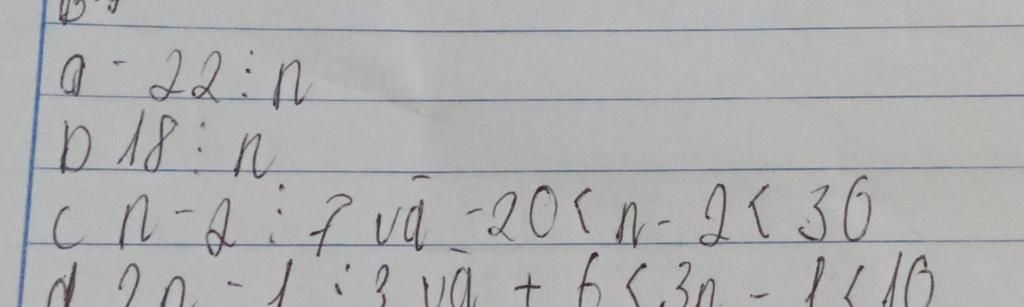 a - 22 ⋮ n
b 18 ⋮ n
c n - 2 ⋮ 7 và - 20 < n - 2 < 30
d 2n - 1 ⋮ 3 và + 6 < 3n - 1 < 10